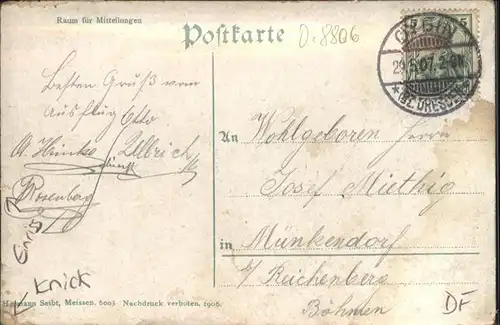 Raum für Mitteilungen
Postkarte
D.8806
5
OYBIN
29.5.07.2-3N
Besten Gruß vom
Ausflug Otto
Ullrich
Rosenberg
An
Wohlgeboren Herrn
Josef Miethig
in
Münkendorf
b/ Reichenberg
Böhmen
Knick
Hermann Seibt, Meissen. 6003 Nachdruck verboten, 1906.
DF